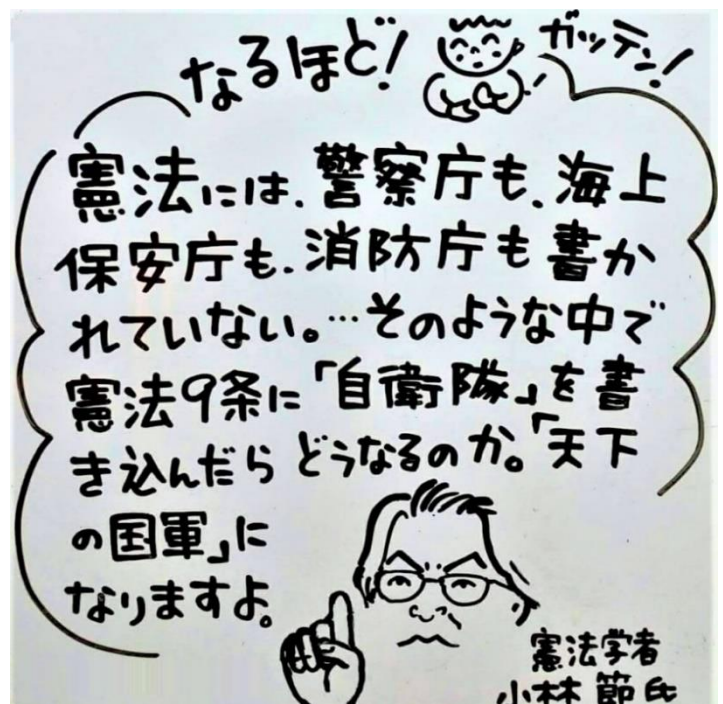 なるほど!
ガッテン!
憲法には、警察庁も、海上
保安庁も、消防庁も書か
れていない。…そのような中で
憲法9条に「自衛隊」を書
き込んだらどうなるのか。「天下
の国軍」に
なりますよ。
憲法学者
小林節氏